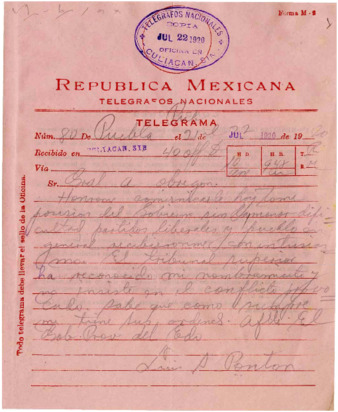 Forma M-6
TELEGRAFOS NACIONALES
COPIA
JUL 22 1920
OFICINA EN
CULIACAN, SIN
REPUBLICA MEXICANA
TELEGRAFOS NACIONALES
TELEGRAMA
Núm. 80 De Puebla Pue el 21 de JUL 22 1920 de 19
Recibido en CULIACAN, SIN
H. D. H. R. T.
Vía
Sr. Gral A Obregon
Honrome comunicarle hoy tome
posesion del Gobierno sin menor difi
cultad partidos liberales y pueblo
general recibieronme con
El tribunal superior
ha reconocido mi nombramiento y
no insiste en el conflicto
Sabe que como siempre
me tiene sus ordenes. Afte El
Gob Prov del Edo
Luis S Ponton
Todo telegrama debe llevar el sello de la Oficina.